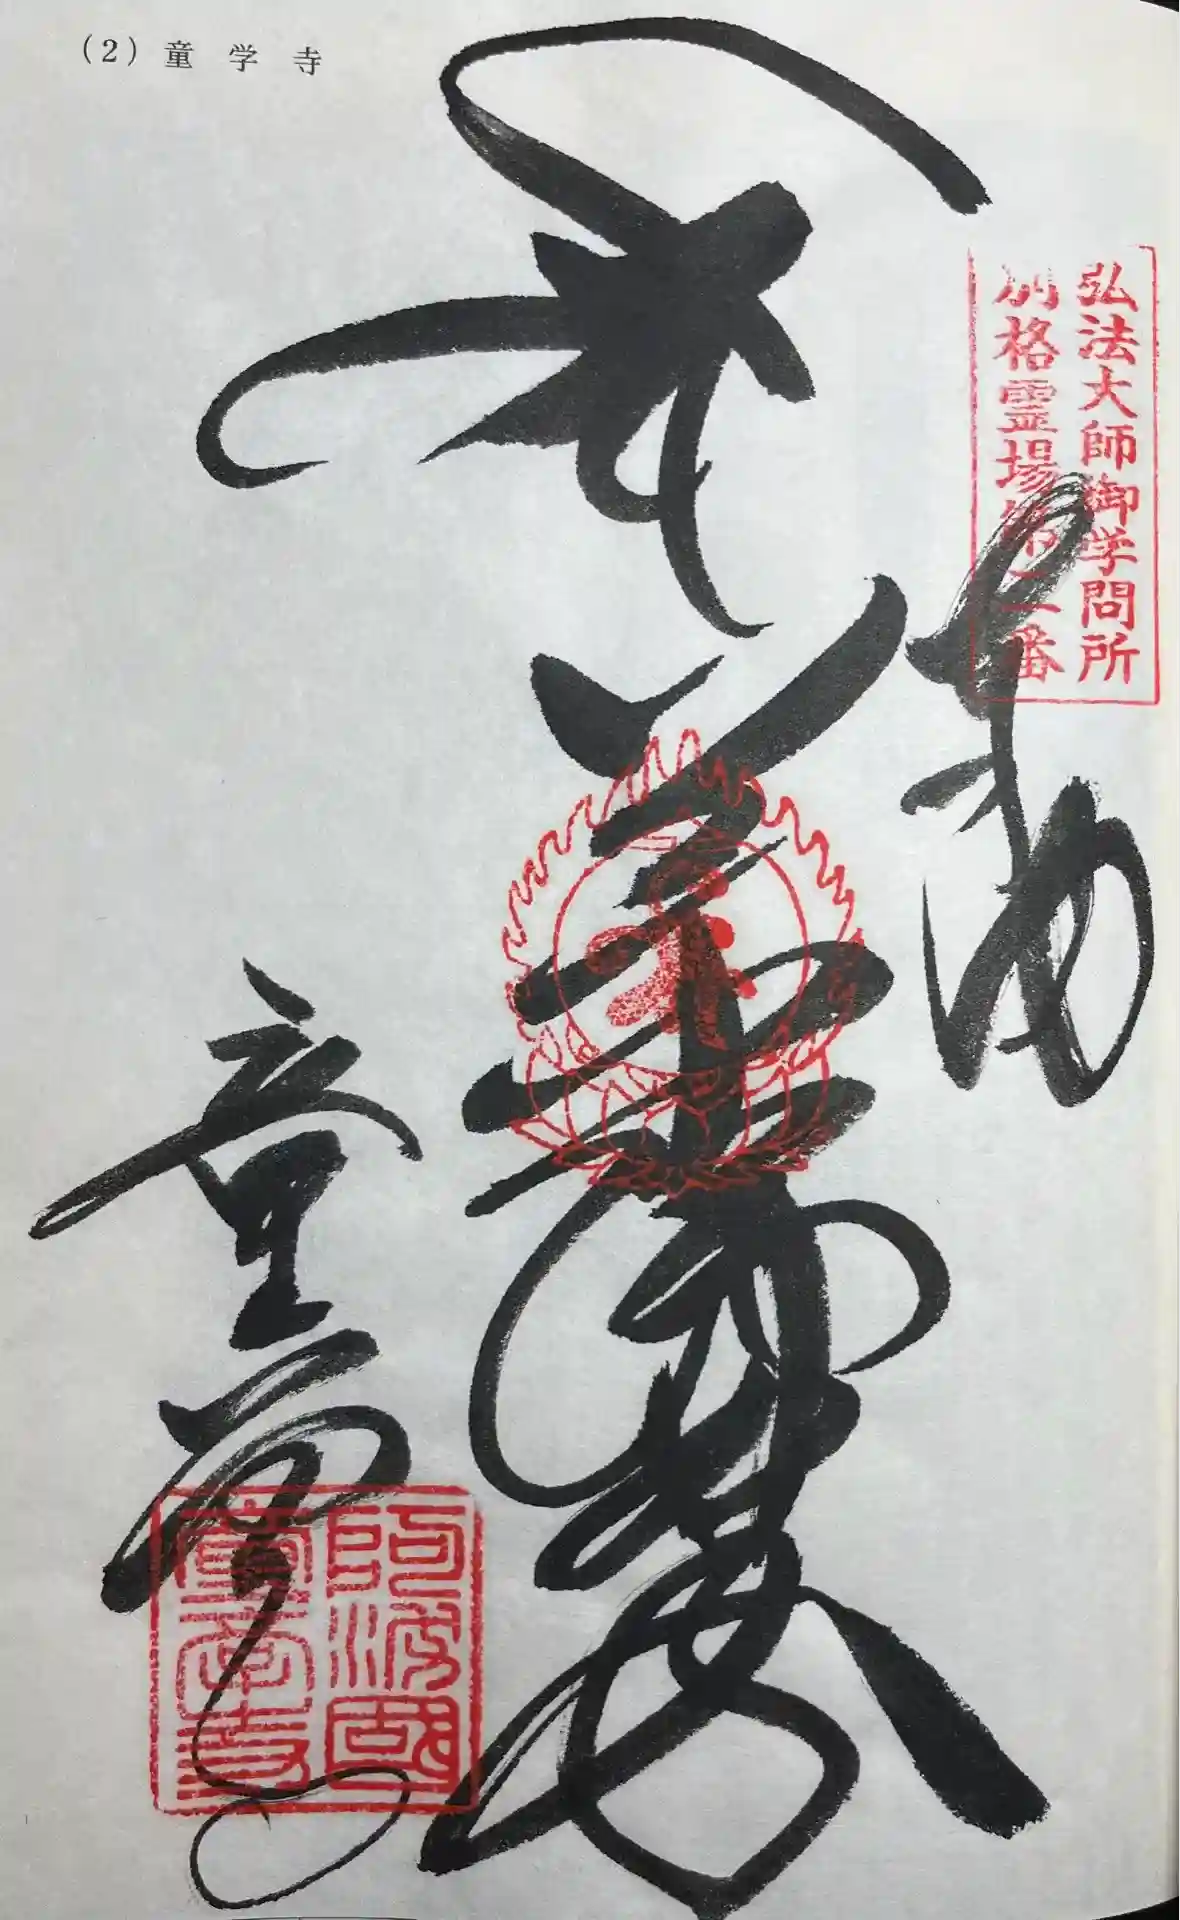 (2) 童学寺
弘法大師御学問所
別格霊場第二番
奉
童学寺
阿波國
童学寺